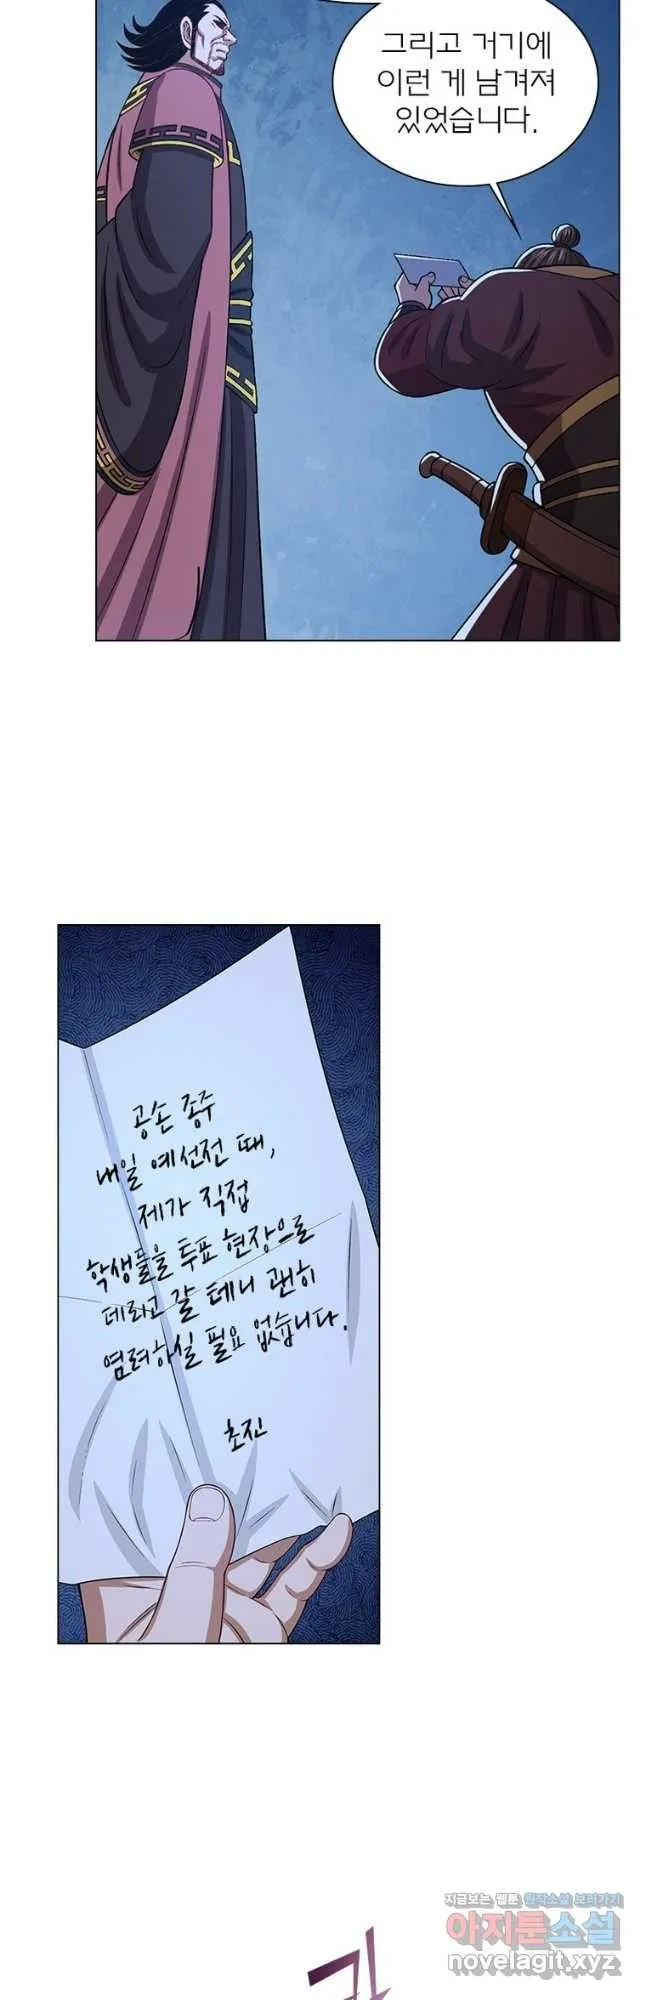 그리고 거기에
이런 게 남겨져
있었습니다.
공손 종주
내일 예선전 때,
제가 직접
학생들을 투표 현장으로
데리고 갈 테니 괜히
염려하실 필요 없습니다.
초진
지금보는 웹툰 원작소설 보러가기
아지툰소설
novelagit.xyz